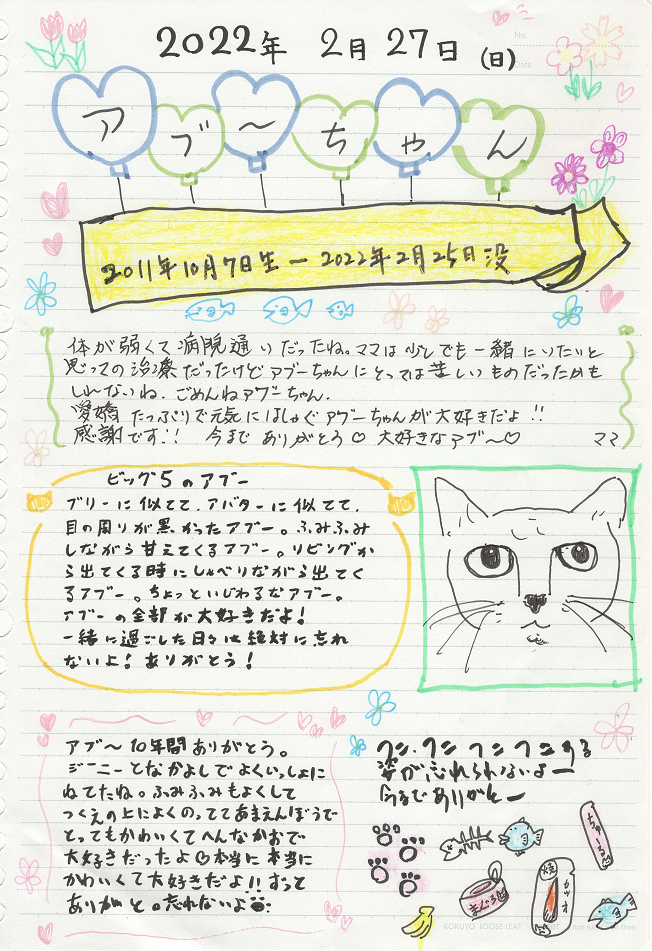 2022年 2月 27日 (日)
No.
Date
アブ～ちゃん
2011年10月7日生ー2022年2月25日没
体が弱くて病院通いだったね。ママは少しでも一緒にいたいと
思っての治療だったけどアブーちゃんにとっては苦しいものだったかも
しれないね．ごめんねアブーちゃん．
愛嬌たっぷりで元気にはしゃぐアブーちゃんが大好きだよ!!
感謝です!! 今までありがとう♡ 大好きなアブ～♡ ママ
ビッグ5のアブー
ブリーに似てて、アバターに似てて、
目の周りが黒かったアブー。ふみふみ
しながら甘えてくるアブー。リビングか
ら出てくる時にしゃべりながら出てく
るアブー。ちょっといじわるなアブー。
アブーの全部が大好きだよ！
一緒に過ごした日々は絶対に忘れ
ないよ！ありがとう！
アブ～10年間ありがとう。
ジーニーとなかよしでよくいっしょに
ねてたね。ふみふみもよくして
つくえの上によくのっててあまえんぼうで
とってもかわいくてへんなかおで
大好きだったよ♡本当に本当に
かわいくて大好きだよ!!ずっと
ありがと。忘れないよ
クン・クン クン クンする
姿が忘れられないよー
今までありがとー
ちゅ～る
まぐろ
焼
カツオ
KOKUYO LOOSE-LEAF